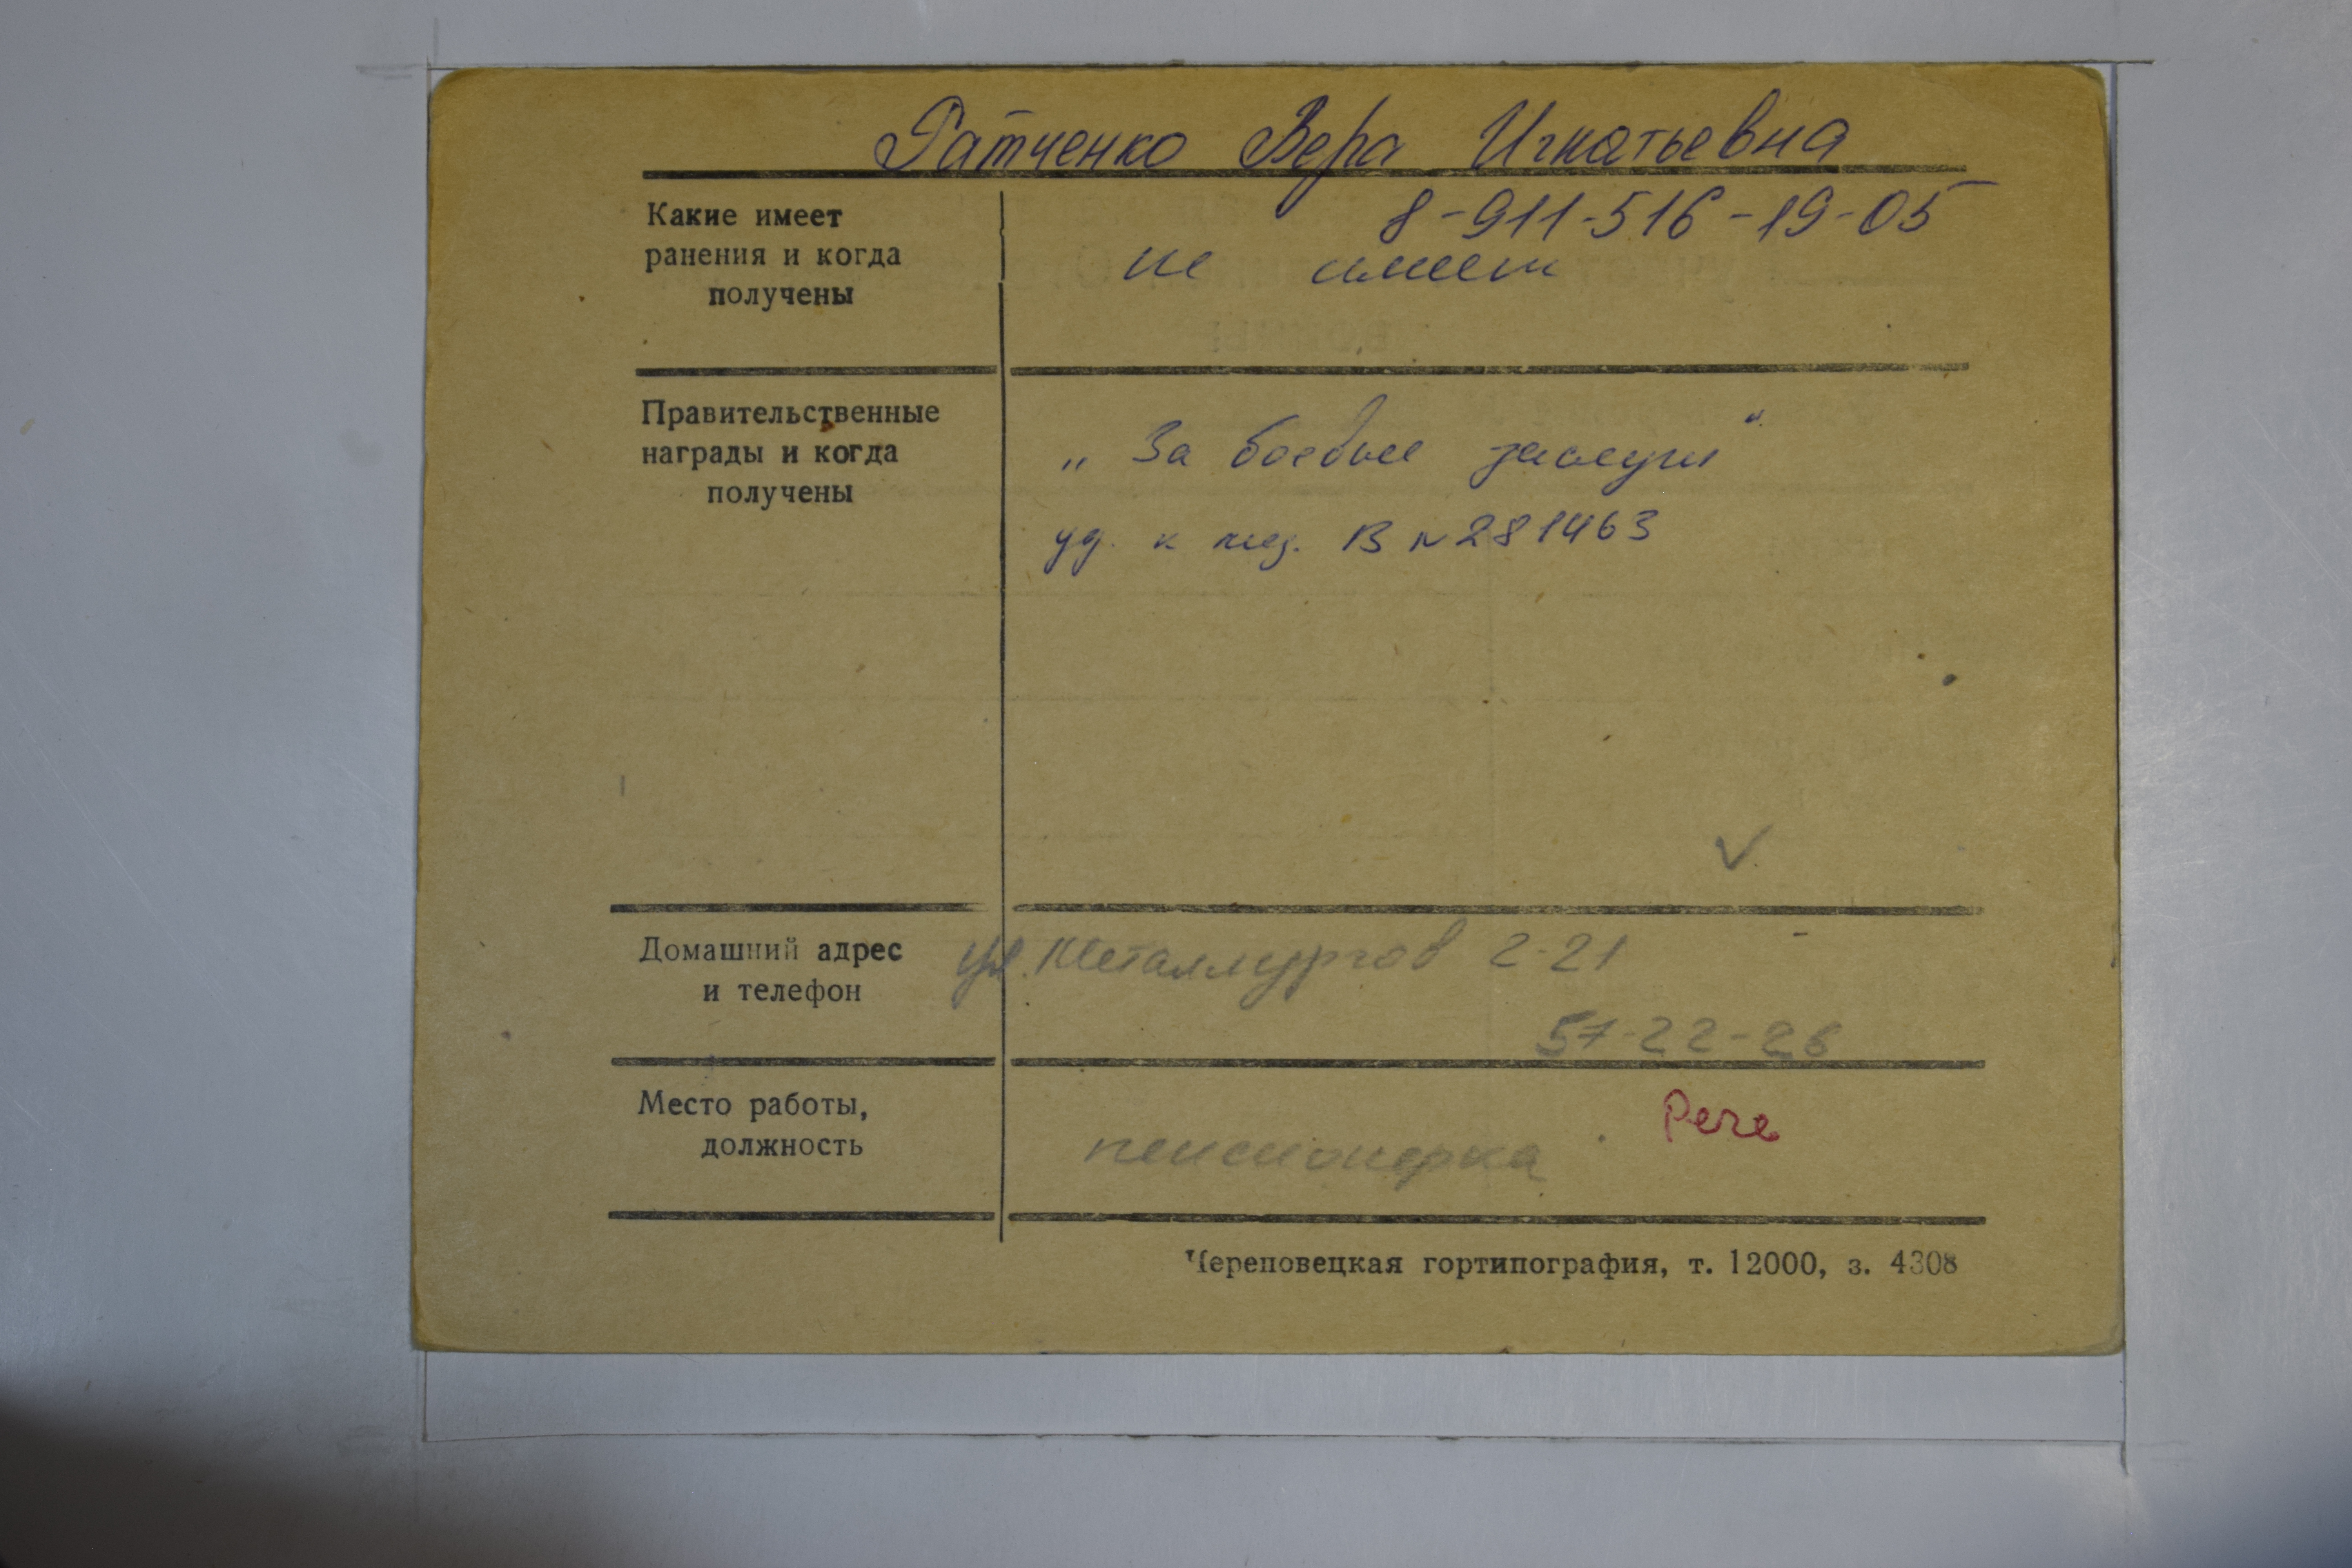 Ратченко Вера Игнатьевна
8-911-516-19-05
Какие имеет
ранения и когда
получены
не имеет
Правительственные
награды и когда
получены
„За боевые заслуги“
уд. к мед. В № 281463
Домашний адрес
и телефон
ул. Металлургов 2-21
57-22-26
Место работы,
должность
пенсионерка
Череповецкая гортипография, т. 12000, з. 4308